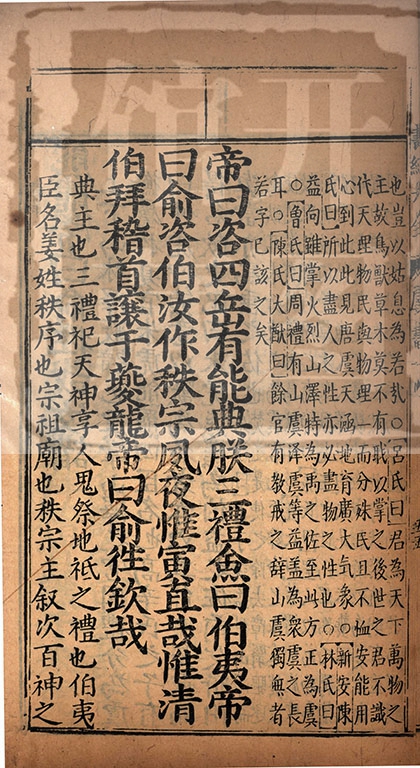 也豈以姑息為若○呂氏曰君為天下萬物之
主故鳥獸草木莫不有我以掌之後世之君不識
代天理物民與物理一而分殊民且不恤安能用
心到此此見唐虞天涵地育廣大氣象○新安陳
氏曰所以盡人之性亦必盡物之性也○林氏曰
益向雖掌火烈山澤特為禹之佐至此方正為虞
○魯氏曰周禮有山虞澤虞等益蓋為衆虞之長
耳○陳氏大猷曰餘官有教戒之辭山虞獨無者
若字已該之矣
帝曰咨四岳有能典朕三禮僉曰伯夷帝
曰俞咨伯汝作秩宗夙夜惟寅直哉惟清
伯拜稽首讓于夔龍帝曰俞往欽哉
典主也三禮祀天神享人鬼祭地祇之禮也伯夷
臣名姜姓秩序也宗祖廟也秩宗主叙次百神之